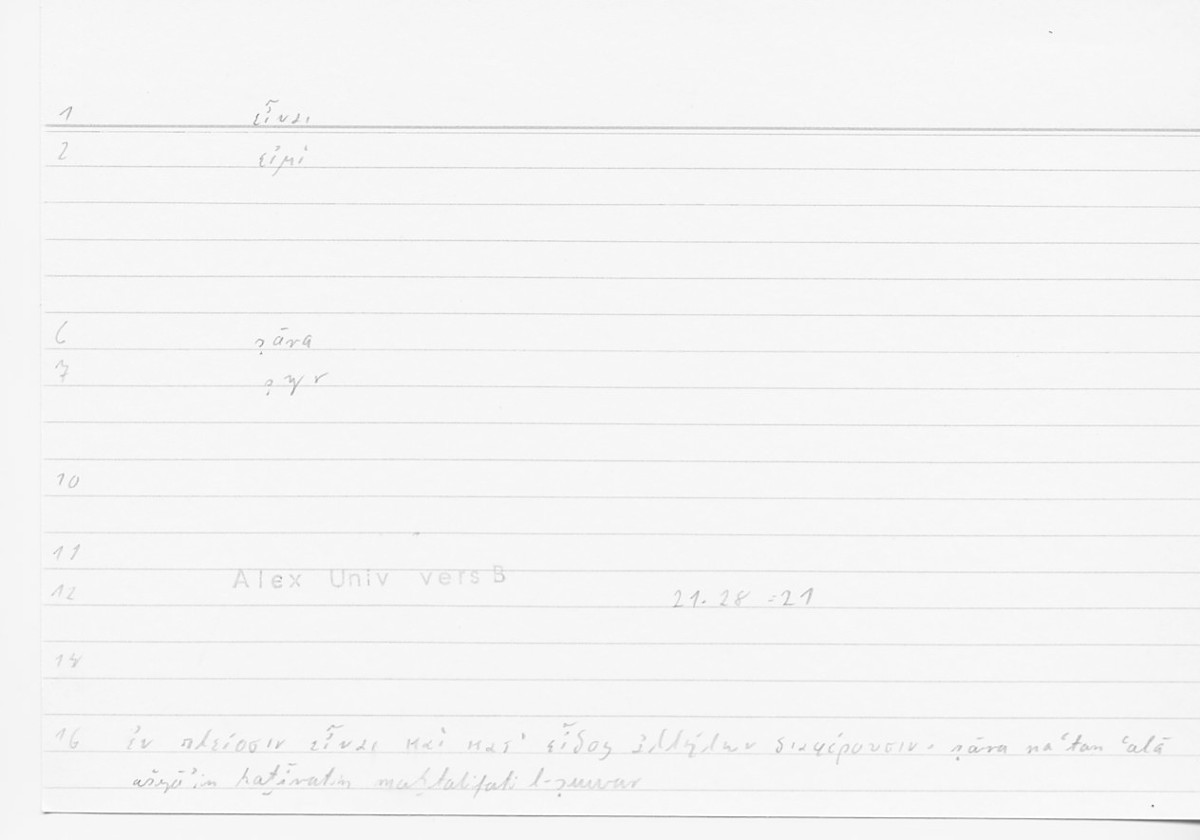 1 εἶναι
2 εἰμί
6 ṣāra
7 ṣyr
10
11
Alex Univ vers B
12 21.28 = 21
14
16 ἐν πλείοσιν εἶναι καὶ κατ' εἶδος ἀλλήλων διαφέρουσιν. ṣāra naʿtan ʿalā
ašyāʾin kaṯīratin muḫtalifati l-ṣuwar